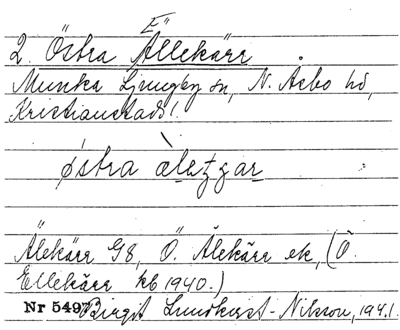 E"
2. Östra Ällekärr
Munka Ljungby sn, N. Åsbo hd,
Kristianstads l.
østra àleçar
Älekärr G8, Ö. Älekärr ek, (Ö.
Ellekärr kb 1940.)
Nr 5497 Birgit Lundkvist-Nilsson, 1941.